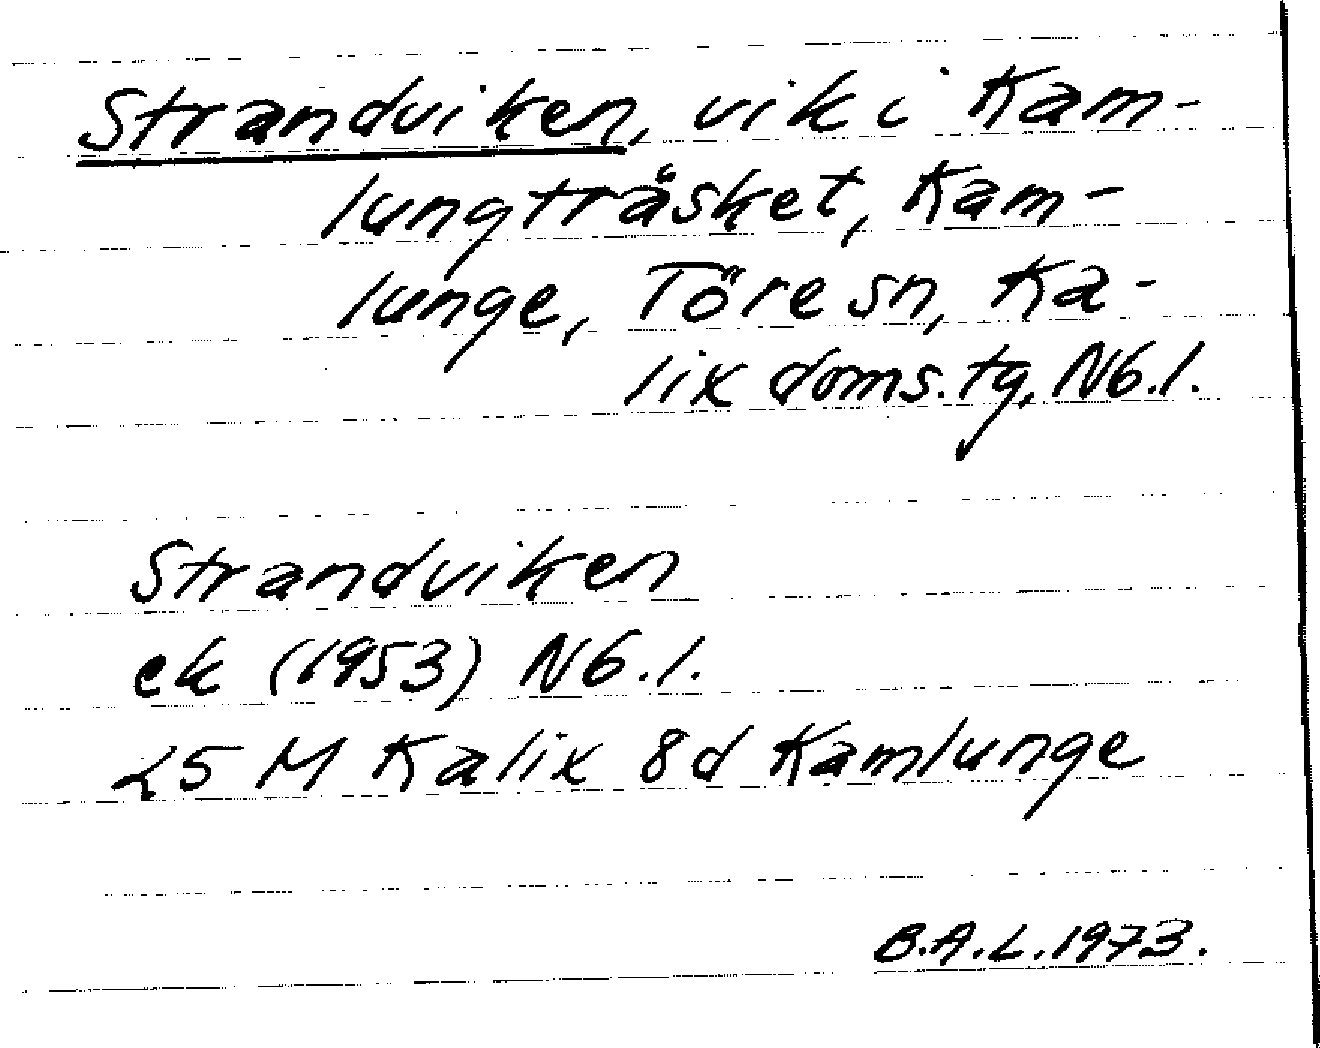 Strandviken, vik i Kam-
lungträsket, Kam-
lunge, Töre sn, Ka-
lix doms. tg, Nb.l.
Strandviken
ek (1953) Nb.l.
25 M Kalix 8d Kamlunge
B.A.L. 1973.